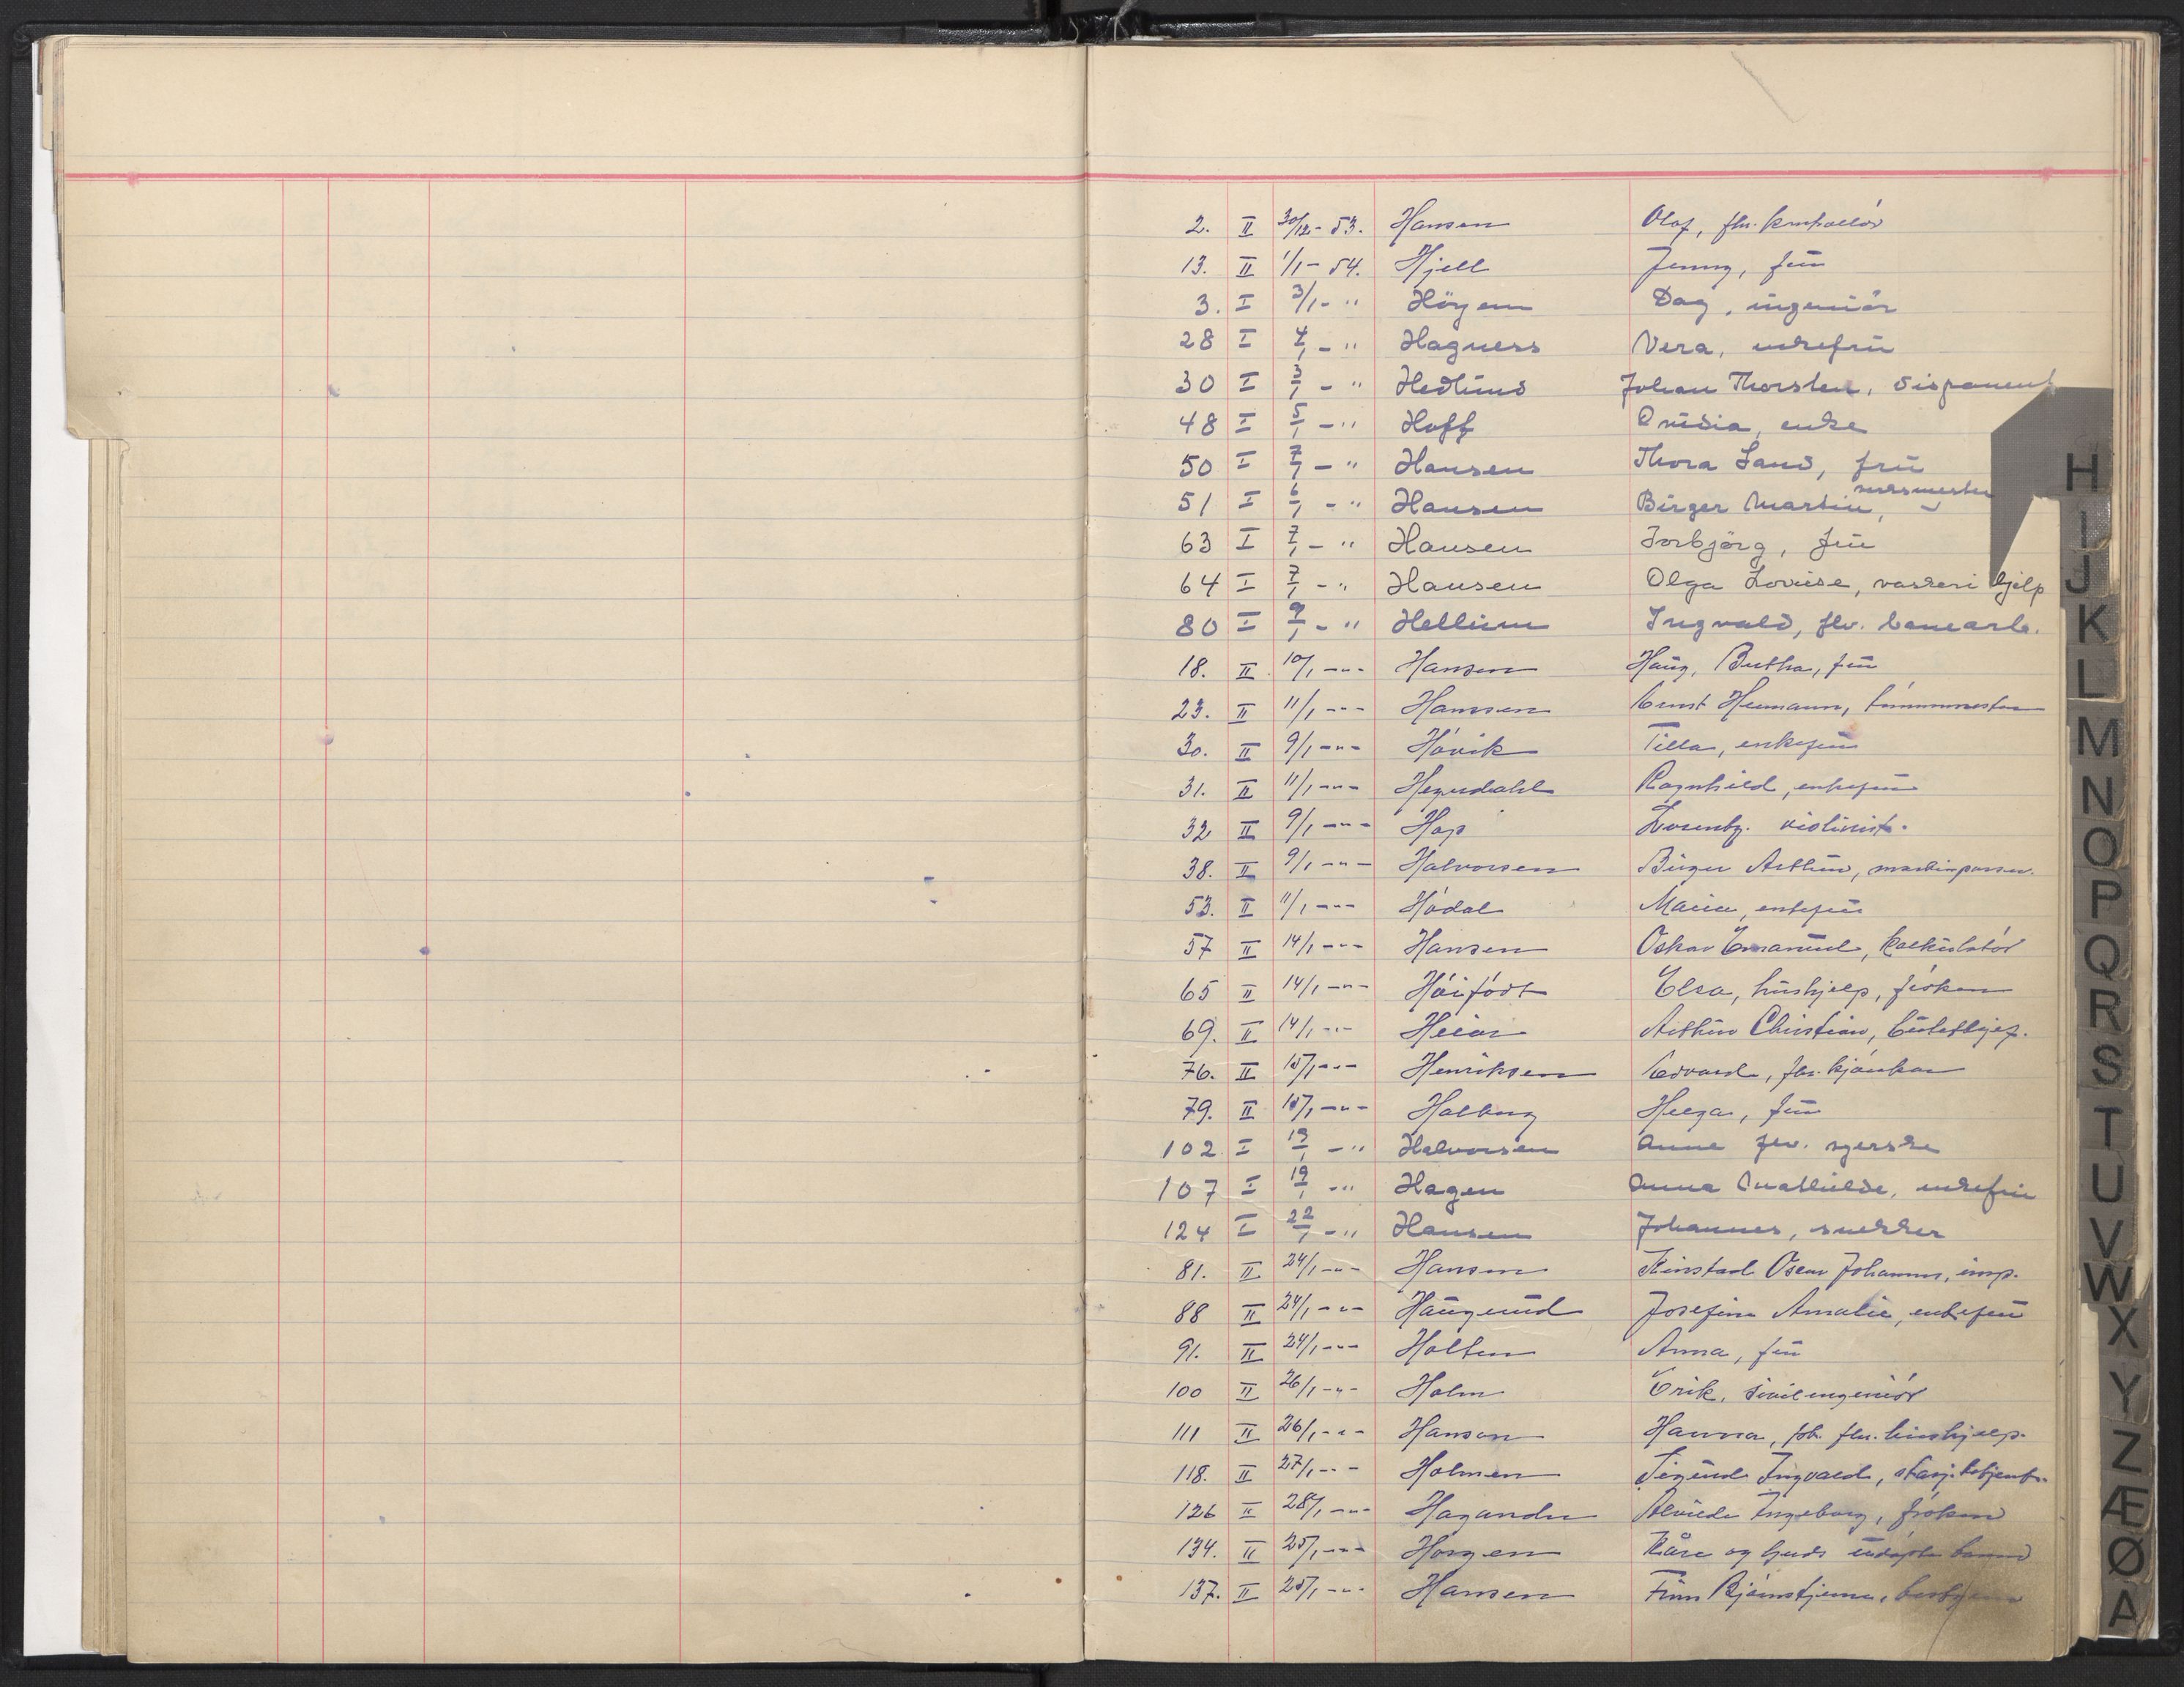 2. II 30/12- 53. Hansen Olaf, fhv. kontrollör
13. II 1/1- 54. Hjell Jenny, frü
3. I 3/1- " Höyem Dag, ingeniör
28 I 4/1 - " Hagness Vera, enkefrü
30 I 3/1 - " Hedlünd Johan Thorsten, disponent
48 I 5/1 - " Hoff Ovidia, enke
50 I 7/1 - " Hansen Thora Land, frü
51 I 6/1 - " Hansen Birger Martin, verksmester
63 I 7/1 - " Hansen Torbjörg, frü
64 I 7/1 - " Hansen Olga Lovise, vaskeri hjelp
80 I 9/1 - " Hellüm Ingvald, fhv. banearb.
18. II 10/1 -"- Hansen Haüg, Bertha, frü
23. II 11/1 -"- Hansen Ernst Hermann, tömmermester
30. II 9/1 -"- Hövik Tilla, enkefrü
31. II 11/1 -"- Hegerdahl Ragnhild, enkefrü
32 II 9/1 -"- Hop violinist.
38. II 9/1 -"- Halvorsen Birger Arthür, maskinpasser.
53. II 11/1 -"- Hödal Maria, enkefrü
57 II 14/1 -"- Hansen Oskar Emanüel, kalkülatör
65 II 14/1 -"- Höifödt Elsa, hüshjelp, fröken
69. II 14/1 -"- Heiar Arthür Christian,
76. II 15/1 -"- Henriksen Edvard, fhv.
79. II 15/1 -"- Holberg Helga, frü
102 I 19/1 - " Halvorsen Anne fhv. syerske
107 I 19/1 - " Hagen Anna Mathilde, enkefrü
124 I 22/1 - " Hansen Johannes, snekker
81. II 24/1 -"- Hansen Oscar Johannes,
88 II 24/1 -"- Haügerüd Josefine Amalie, enkefrü
91. II 24/1 -"- Holten Anna, frü
100 II 26/1 -"- Holm Erik, sivilingeniör
111 II 26/1 -"- Hanson Hanna, frk. fhv. hüshjelp.
118. II 27/1 -"- Holmen Sigürd Ingvald, stasj.betjent.
126 II 28/1 -"- Hagander Alvilde Ingeborg, fröken
134. II 25/1 -"- Horgen Kåre og hjeds üdöpte barn
137. II 25/1 -"- Hansen Finn Björnstjerne,
H
I
J
K
L
M
N
O
P
Q
R
S
T
U
V
W
X
Y
Z
Æ
Ø
A